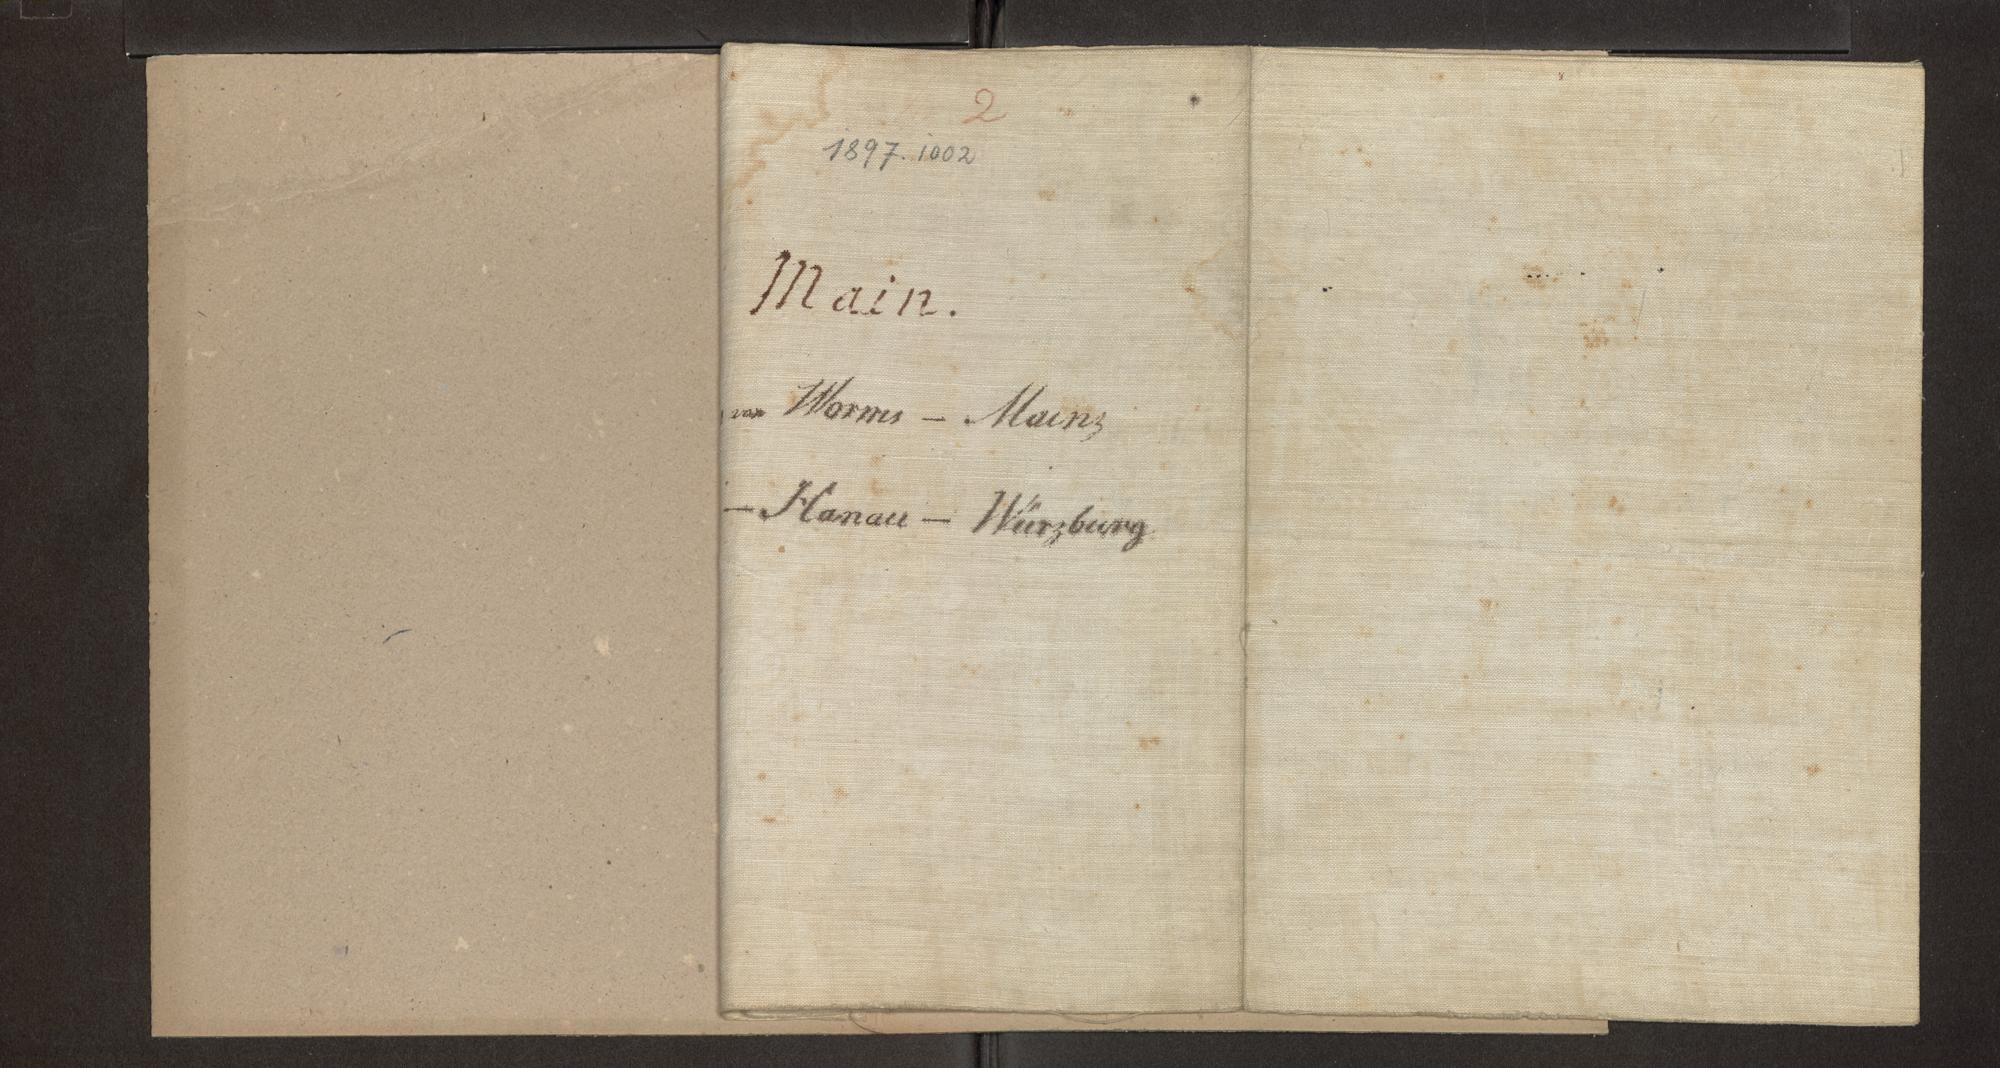 2
1897.1002
Main.
von Worms — Mainz
— Hanau — Würzburg